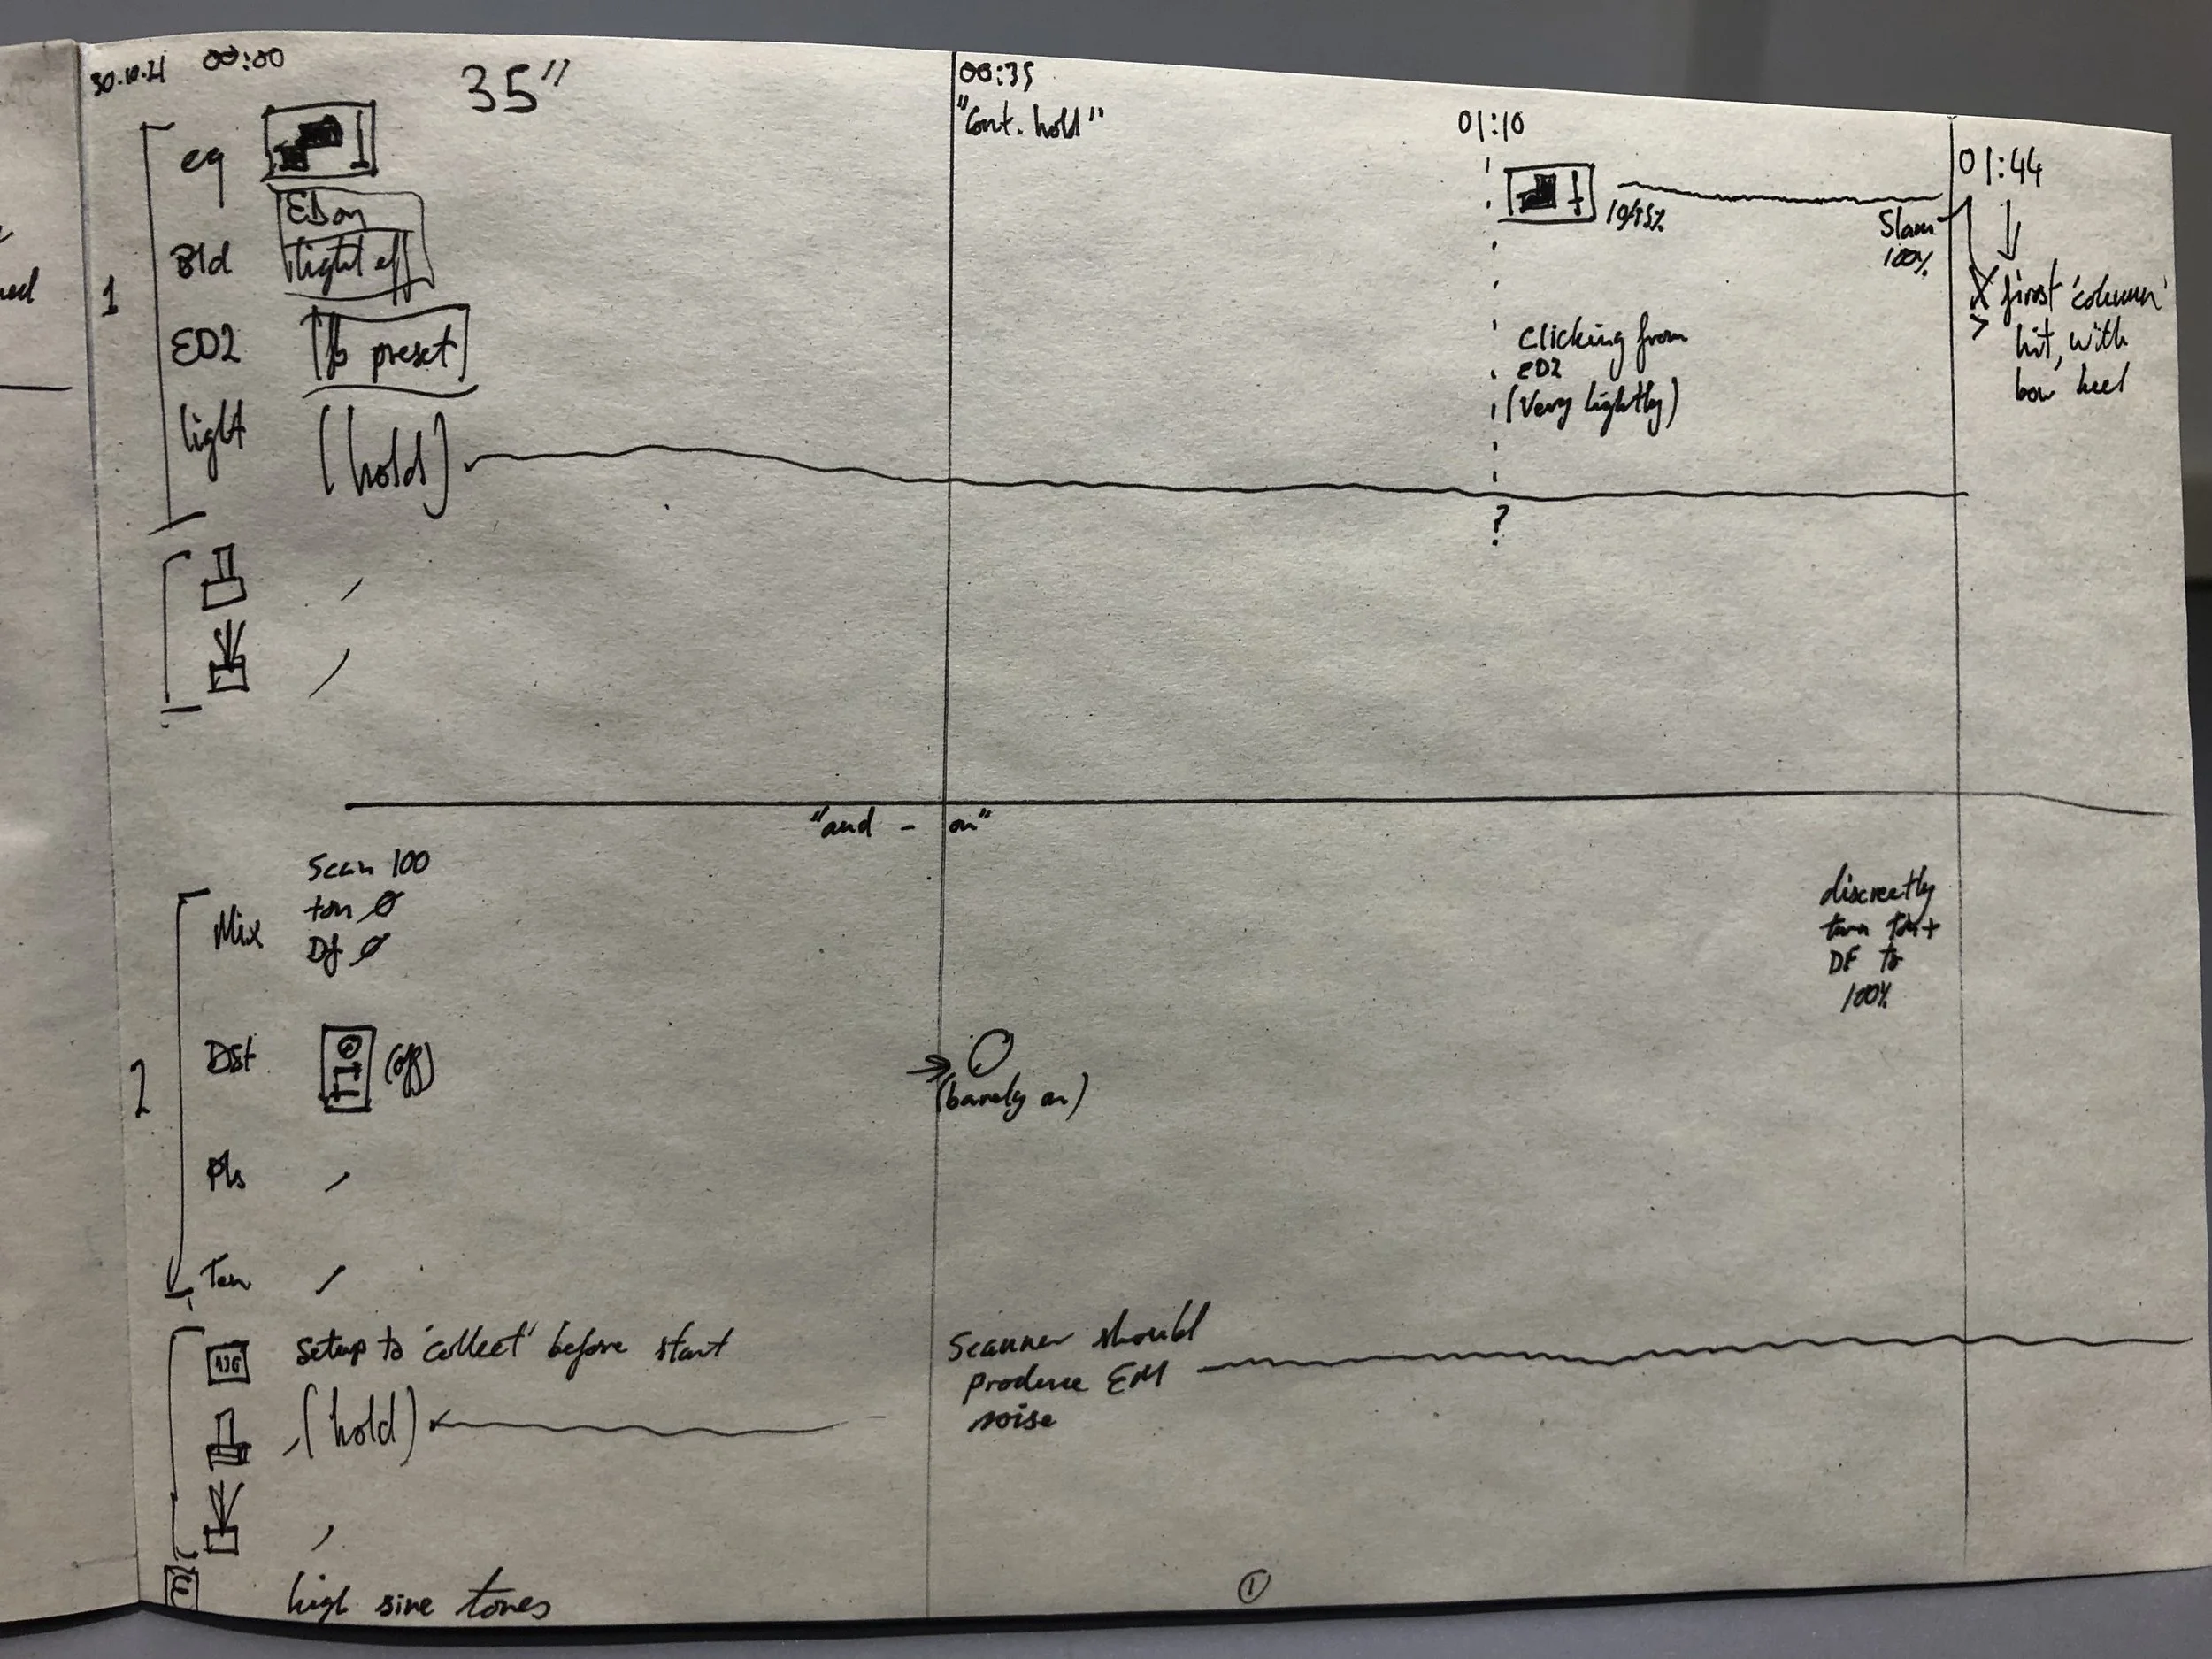 30.10.21 00:00
35”
00:35
"Cont. hold"
01:10
01:44
1
eq
EB on
light off
Bld
ED2
preset
light
(hold)
Slam
100%
first 'column'
hit, with
bow heel
Clicking from
ED2
(very lightly)
?
"and - on"
2
Mix
Scan 100
ton Ø
Df Ø
discreetly
turn ton +
DF to
100%
Dst
(off)
(barely on)
Pls
Ton
setup to 'collect' before start
(hold)
Scanner should
produce EM
noise
E
high sine tones
1